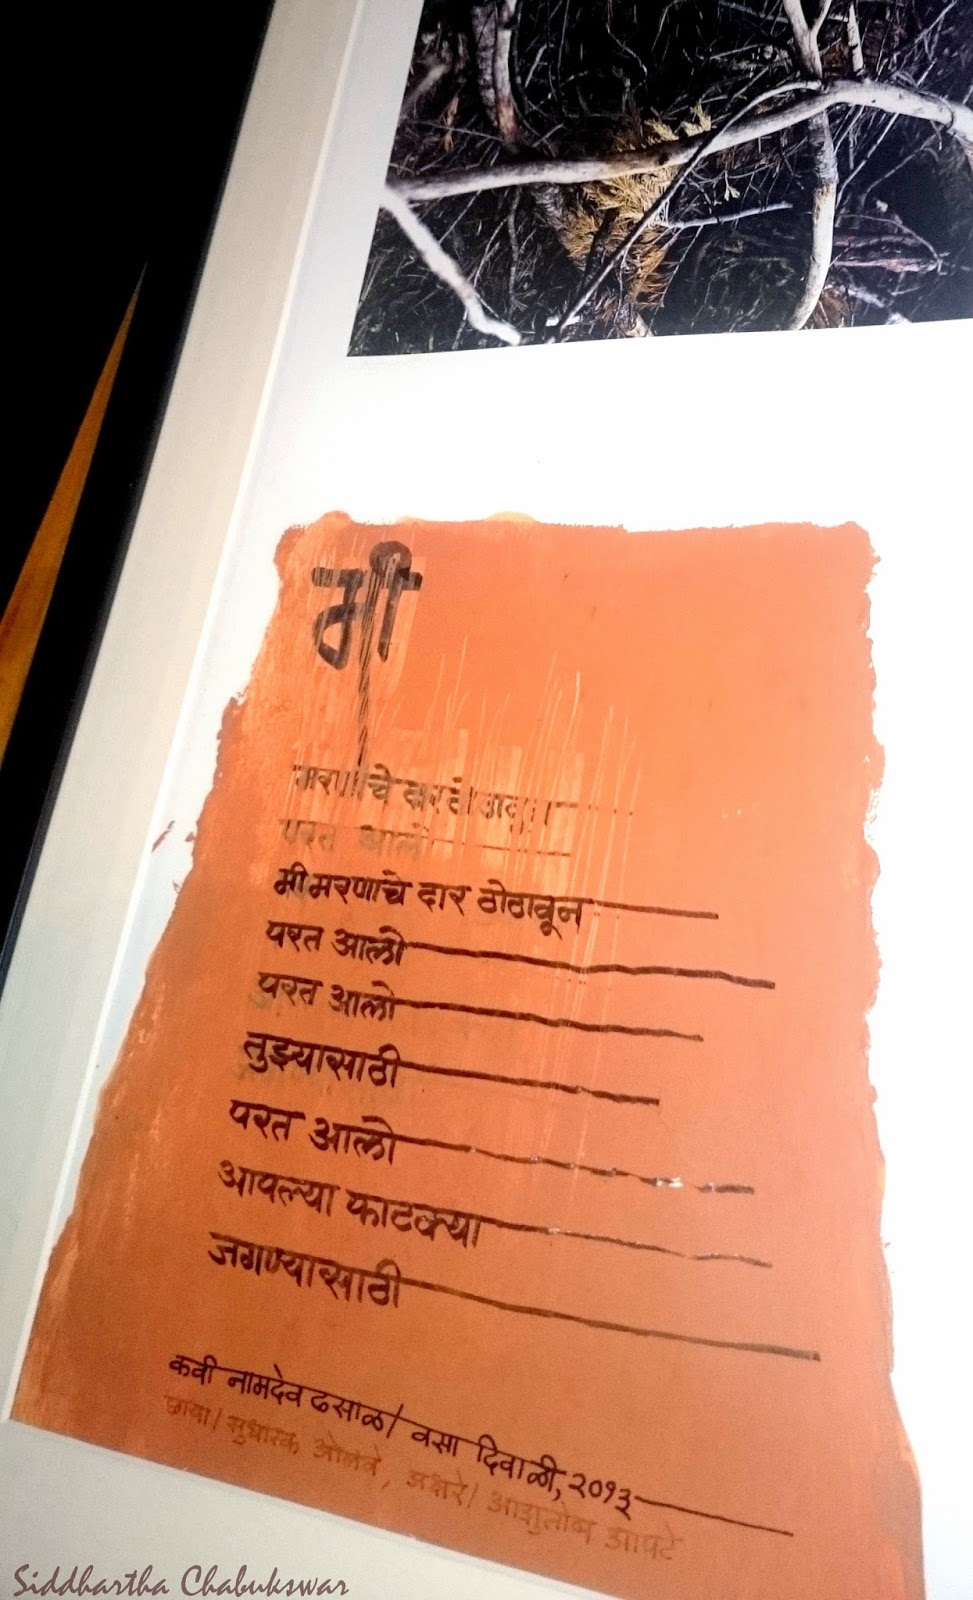 मी
मरणाचे दार ठोठावून
परत आलो
मी मरणाचे दार ठोठावून
परत आलो
परत आलो
तुझ्यासाठी
परत आलो
आपल्या फाटक्या
जगण्यासाठी
कवी नामदेव ढसाळ / वसा दिवाळी, २०१३
छाया / सुधारक ओलवे, अक्षरे / आशुतोष आपटे
Siddhartha Chabukswar